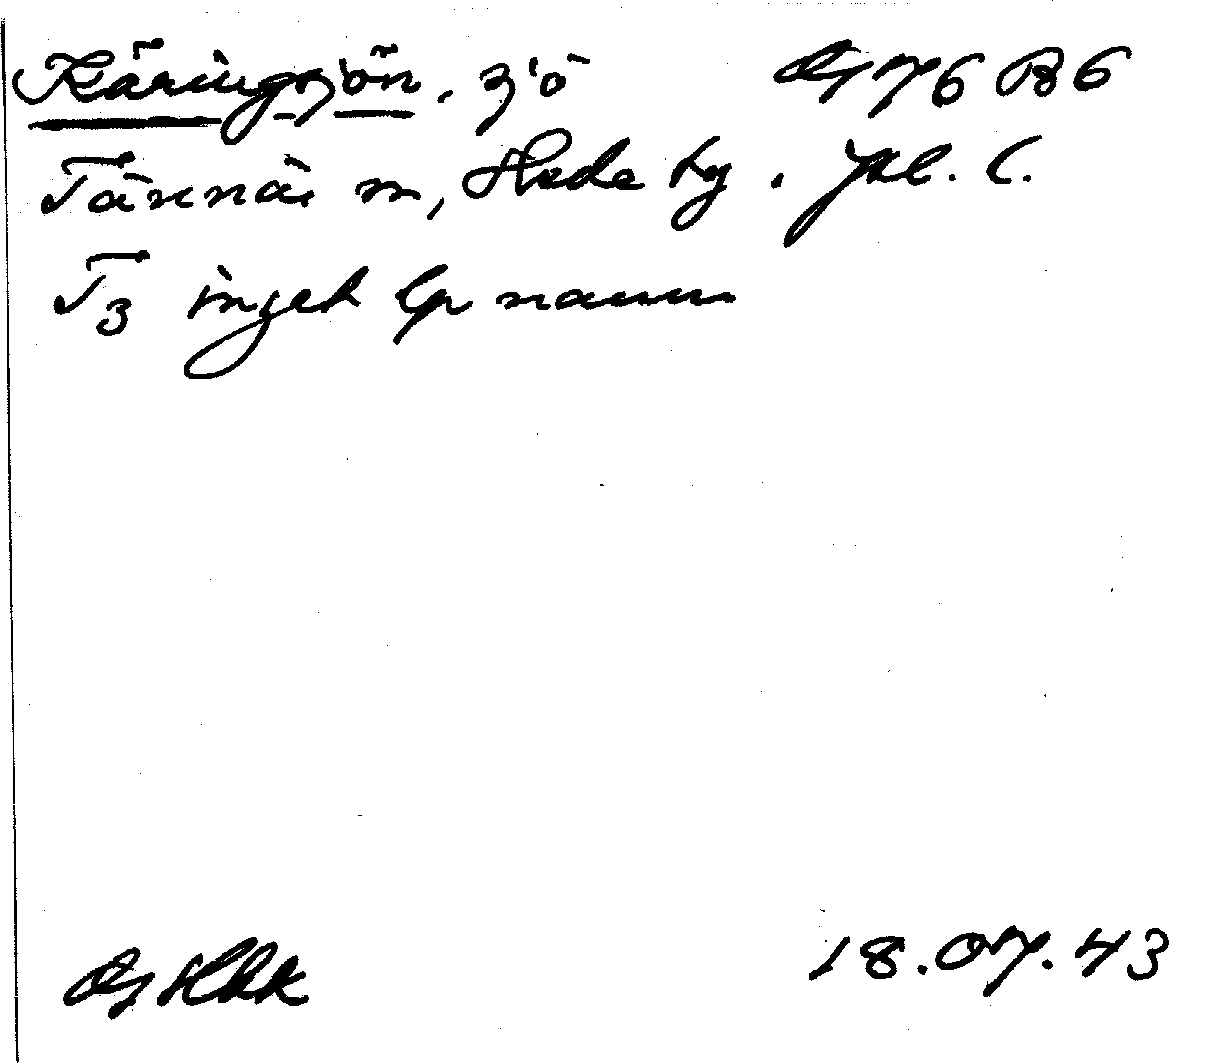 Käringsjön. sjö Gg 76 B 6
Tännäs sn, Hede tg. Jtl. l.
T3 inget lp namn
18.07.43